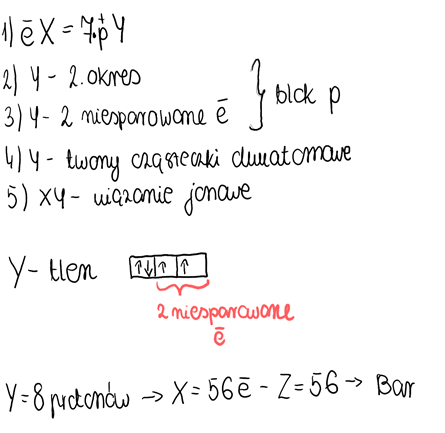 1) ē X = 7·p⁺ Y
2) Y - 2. okres
3) Y - 2 niesparowane ē
blok p
4) Y - tworzy cząsteczki dwuatomowe
5) XY - wiązanie jonowe
Y - tlen ↑↓ ↑ ↑
2 niesparowane
ē
Y = 8 protonów → X = 56ē - Z = 56 → Bar